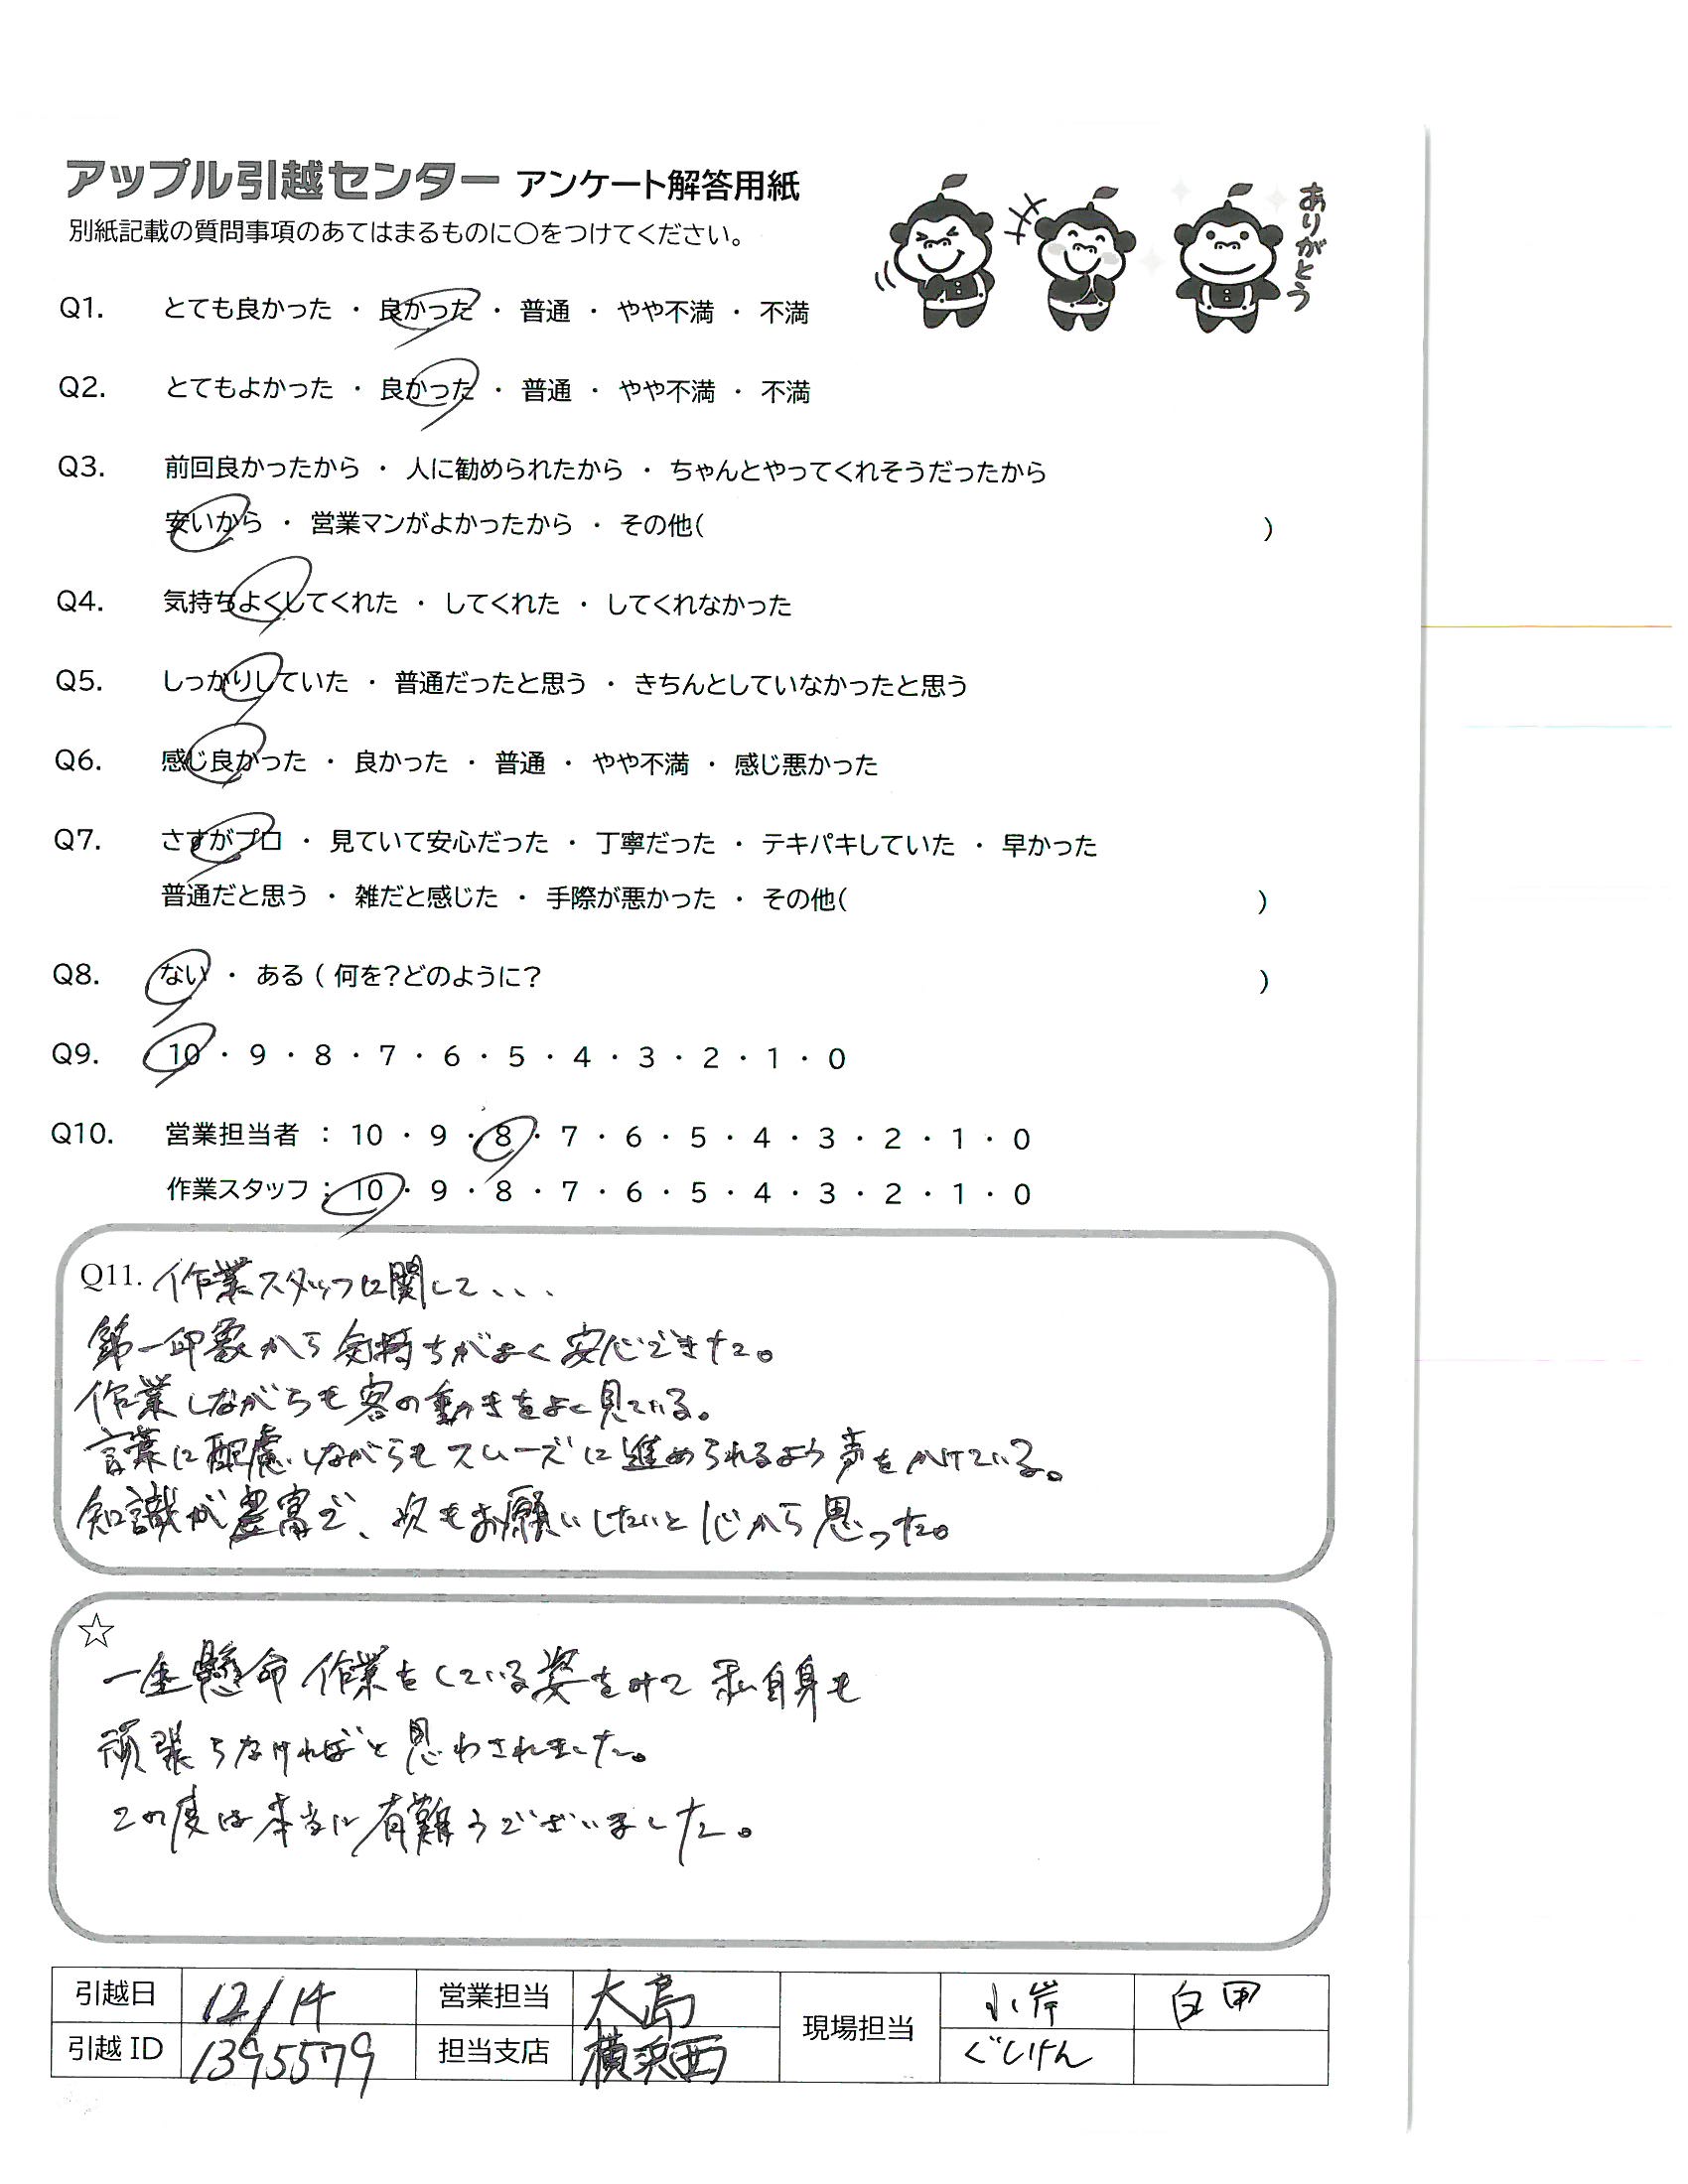 アップル引越センター アンケート解答用紙
別紙記載の質問事項のあてはまるものに○をつけてください。
ありがとう
Q1. とても良かった ・ 良かった ・ 普通 ・ やや不満 ・ 不満
Q2. とてもよかった ・ 良かった ・ 普通 ・ やや不満 ・ 不満
Q3. 前回良かったから ・ 人に勧められたから ・ ちゃんとやってくれそうだったから
安いから ・ 営業マンがよかったから ・ その他( )
Q4. 気持ちよくしてくれた ・ してくれた ・ してくれなかった
Q5. しっかりしていた ・ 普通だったと思う ・ きちんとしていなかったと思う
Q6. 感じ良かった ・ 良かった ・ 普通 ・ やや不満 ・ 感じ悪かった
Q7. さすがプロ ・ 見ていて安心だった ・ 丁寧だった ・ テキパキしていた ・ 早かった
普通だと思う ・ 雑だと感じた ・ 手際が悪かった ・ その他( )
Q8. ない ・ ある ( 何を?どのように? )
Q9. 10 ・ 9 ・ 8 ・ 7 ・ 6 ・ 5 ・ 4 ・ 3 ・ 2 ・ 1 ・ 0
Q10. 営業担当者 : 10 ・ 9 ・ 8 ・ 7 ・ 6 ・ 5 ・ 4 ・ 3 ・ 2 ・ 1 ・ 0
作業スタッフ : 10 ・ 9 ・ 8 ・ 7 ・ 6 ・ 5 ・ 4 ・ 3 ・ 2 ・ 1 ・ 0
Q11. 作業スタッフに関して、、、
第一印象から気持ちがよく安心できた。
作業しながらも客の動きをよく見ている。
言葉に配慮しながらもスムーズに進められるよう声をかけている。
知識が豊富で、次もお願いしたいと心から思った。
☆
一生懸命作業をしている姿をみて私自身も
頑張らなければと思わされました。
この度は本当に有難うございました。
引越日 12/14 営業担当 大島 現場担当 小岸 白甲
引越 ID 1395579 担当支店 横浜西 ぐしけん